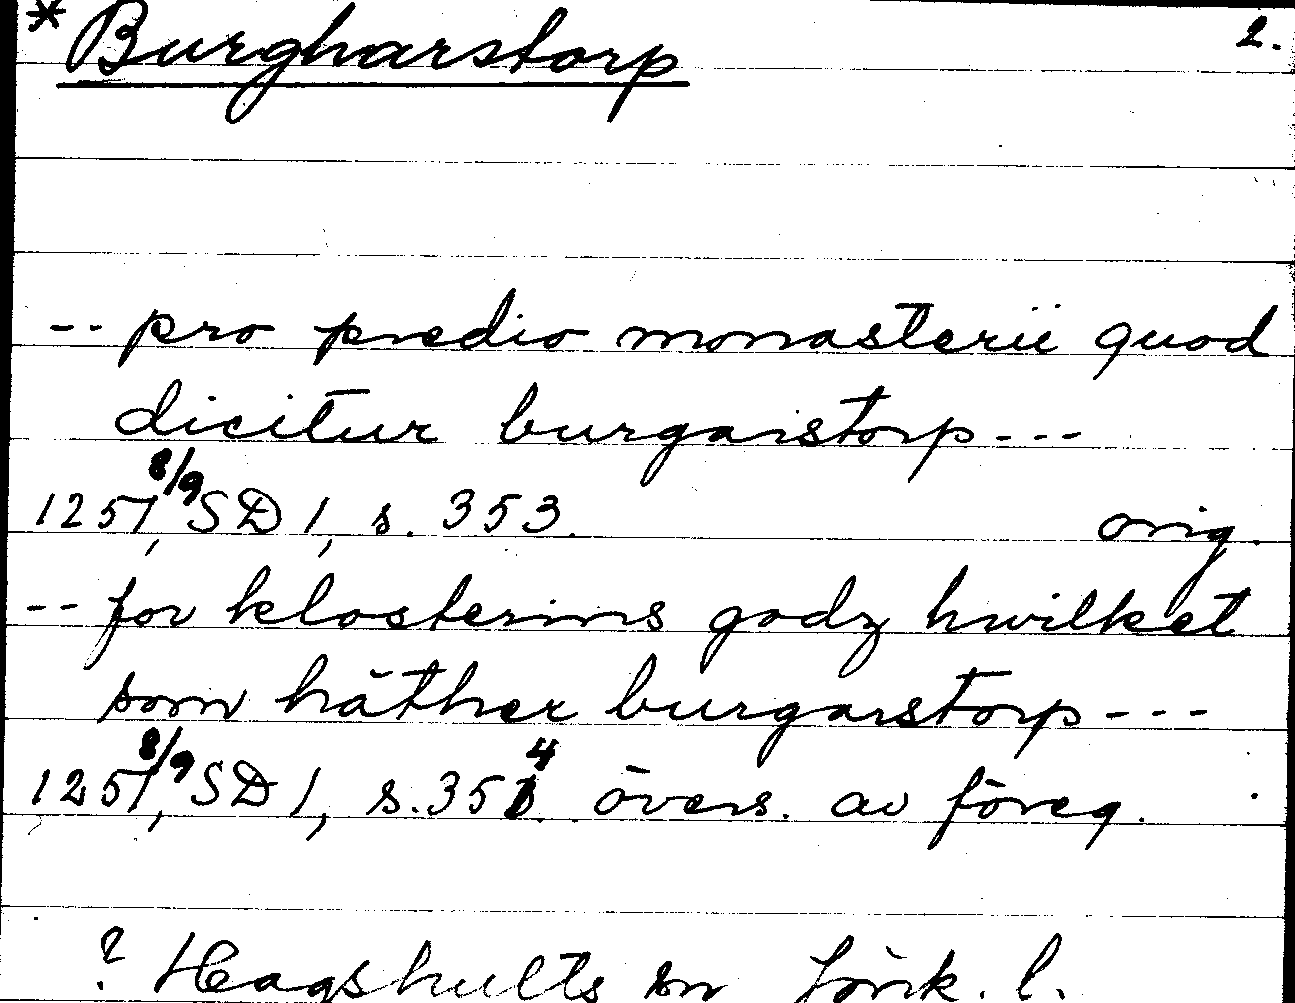 * Burgharstorp 2.
-- pro predio monasterii quod
dicitur burgarstorp---
1251 8/9, SD 1, s. 353. orig.
-- for klosterins godz hwilket
som häther burgarstorp---
1251 8/9, SD 1, s. 354 övers. av föreg.
? Hagshults sn Jönk. l.